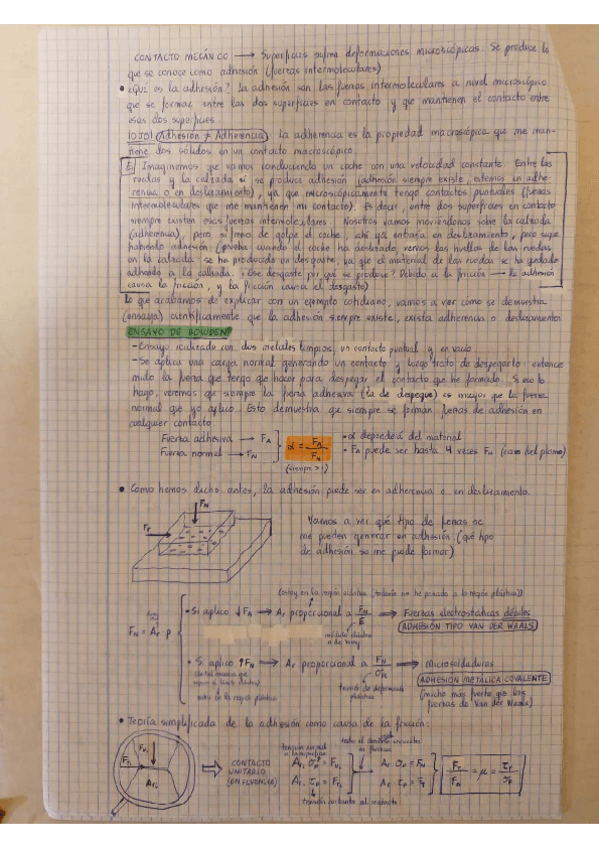 CONTACTO MECÁNICO → Superficies sufren deformaciones microscópicas. Se produce lo
que se conoce como adhesión (fuerzas intermoleculares)
• ¿QUÉ es la adhesión? La adhesión son las fuerzas intermoleculares a nivel microscópico
que se forman entre las dos superficies en contacto y que mantienen el contacto entre
esas dos superficies.
¡OJO! (Adhesión ≠ Adherencia) La adherencia es la propiedad macroscópica que me man-
tiene dos sólidos en un contacto macroscópico.
Imaginemos que vamos conduciendo un coche con una velocidad constante. Entre las
ruedas y la calzada sí se produce adhesión (adhesión siempre existe, estemos en adhe-
rencia o en deslizamiento), ya que microscópicamente tengo contactos puntuales (fuerzas
intermoleculares que me mantienen mi contacto). Es decir, entre dos superficies en contacto
siempre existen esas fuerzas intermoleculares. Nosotros vamos moviéndonos sobre la calzada
(adherencia), pero si freno de golpe el coche, ahí ya entraría en deslizamiento, pero sigue
habiendo adhesión (prueba: cuando el coche ha deslizado, vemos las huellas de las ruedas
en la calzada: se ha producido un desgaste, ya que el material de las ruedas se ha quedado
adherido a la calzada. ¿Ese desgaste por qué se produce? Debido a la fricción → la adhesión
causa la fricción, y la fricción causa el desgaste)
Lo que acabamos de explicar con un ejemplo cotidiano, vamos a ver como se demuestra
(ensaya) científicamente que la adhesión siempre existe, exista adherencia o deslizamiento:
ENSAYO DE BOWDEN
- Ensayo realizado con dos metales limpios, un contacto puntual y en vacío.
- Se aplica una carga normal generando un contacto y luego trato de despegarlo: entonces
mido la fuerza que tengo que hacer para despegar el contacto que he formado. Si eso lo
hago, veremos que siempre la fuerza adhesiva (la de despegue) es mayor que la fuerza
normal que yo aplico. Esto demuestra que siempre se forman fuerzas de adhesión en
cualquier contacto.
Fuerza adhesiva → FA
Fuerza normal → FN
α = FA/FN
(siempre > 1)
• α dependerá del material
• FA puede ser hasta 4 veces FN (caso del plomo)
• Como hemos dicho antes, la adhesión puede ser en adherencia o en deslizamiento.
FN
Vamos a ver qué tipo de fuerzas se
me pueden generar en adhesión (qué tipo
de adhesión se me puede formar)
(estoy en la región elástica (todavía no he pasado a la región plástica))
FN = Ar · p
• Si aplico ↓FN → Ar proporcional a FN/E → Fuerzas electrostáticas débiles
(ADHESIÓN TIPO VAN DER WAALS)
módulo elástico
• Si aplico ↑FN → Ar proporcional a FN/σ → Microsoldaduras
ADHESIÓN METÁLICA COVALENTE
(mucho más fuerte que las
fuerzas de Van der Waals)
tensión de deformación
plástica
• Teoría simplificada de la adhesión como causa de la fricción:
CONTACTO
UNITARIO
(EN FLUENCIA)
tensión cortante al contacto
= μ =